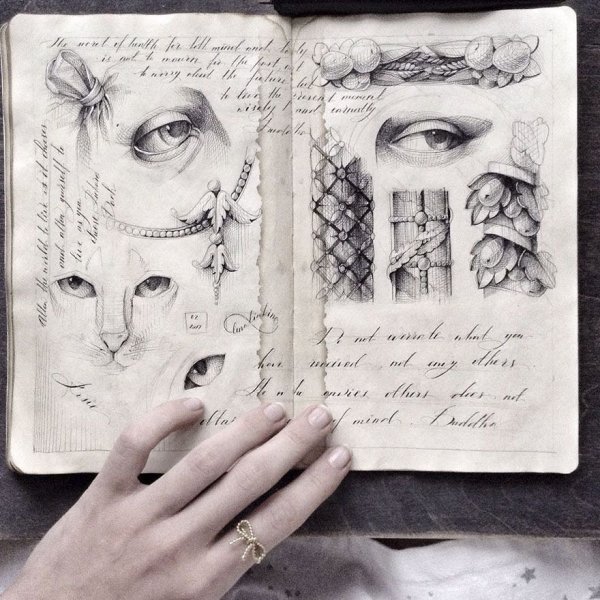 The secret of health for both mind and body
is not to mourn for the past not
to worry about the future, but
to live the present moment
wisely and earnestly
Allow the world to live as it chooses
and allow yourself to
live as you
Do not overrate what you
have received, nor envy others
He who envies others does not
of mind. Buddha